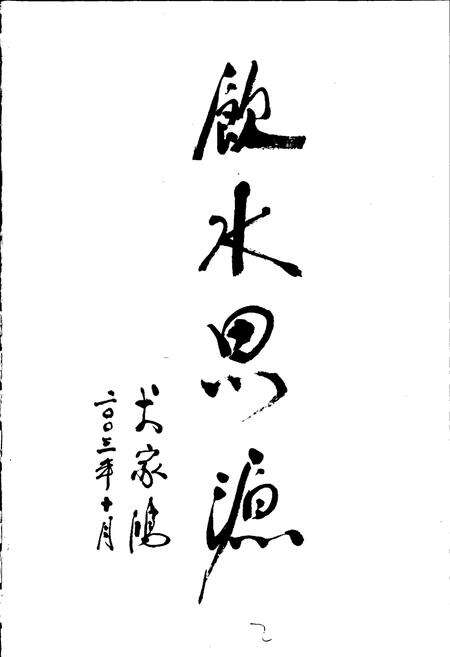 飲水思源
家
二〇〇三年十月